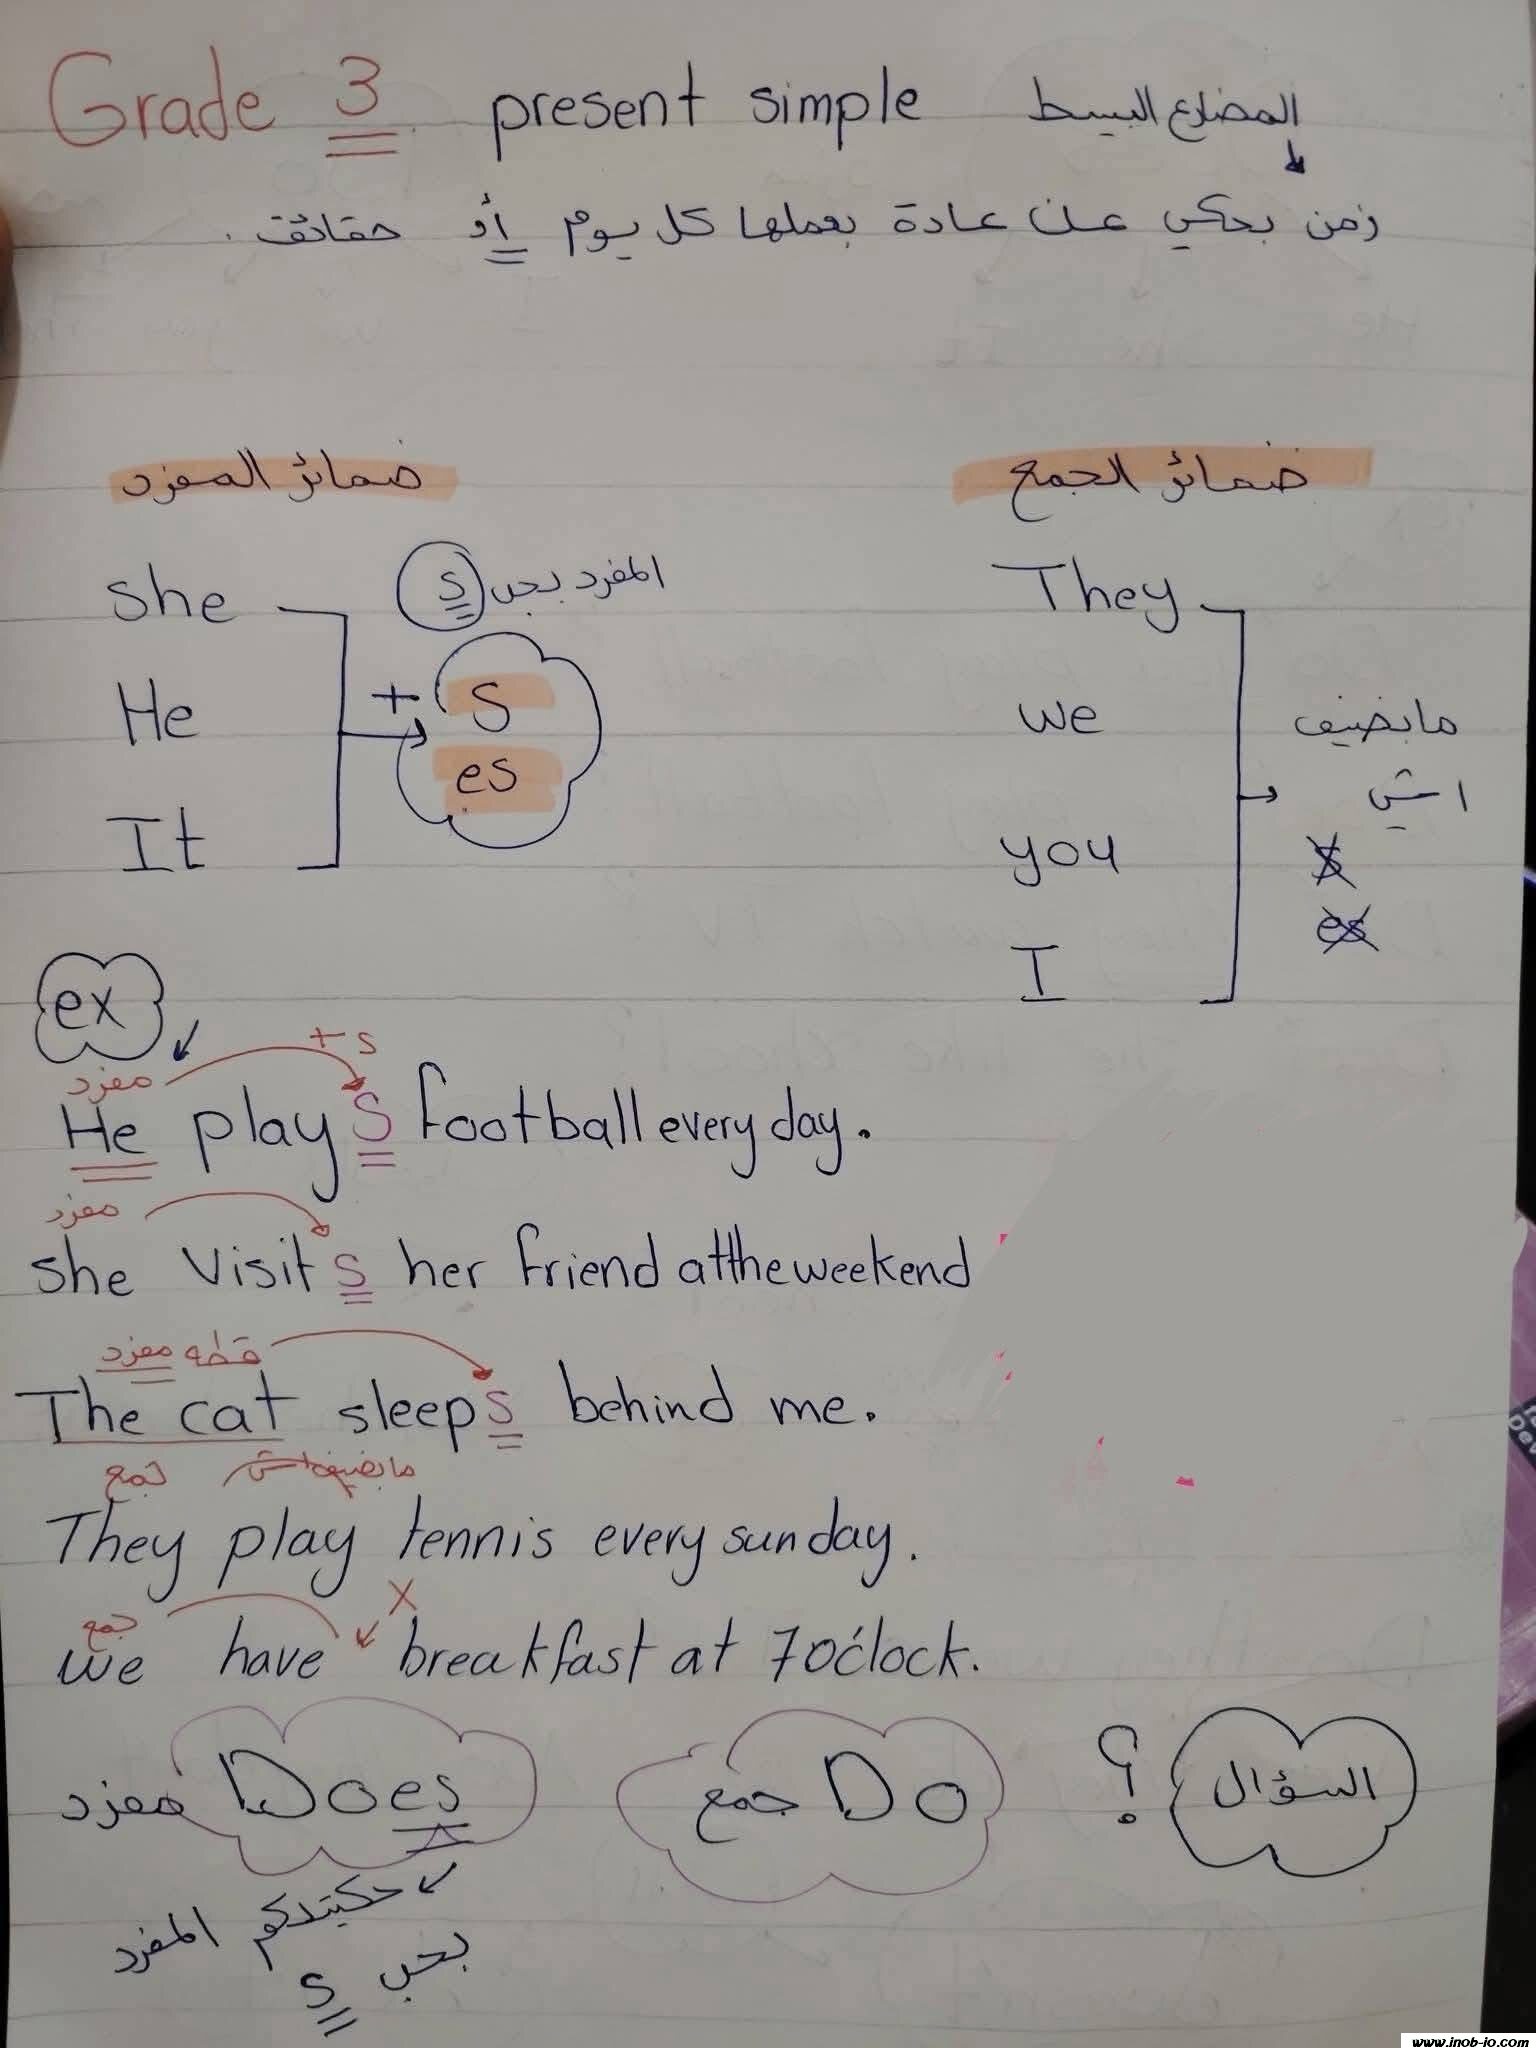 Grade 3 present simple المضارع البسيط
زمن بحكي عن عادة بعملها كل يوم أو حقائق .
ضمائر المفرد
ضمائر الجمع
المفرد بحب s
she
He
It
+ s
es
They
we
you
I
ما بضيف
اشي
s
es
ex
مفرد + s
He plays football every day.
مفرد
she visits her friend at the weekend
قطه مفرد
The cat sleeps behind me.
جمع ما بضيف اشي
They play tennis every sunday.
جمع X
we have breakfast at 7 o'clock.
السؤال ؟
Do جمع
Does مفرد
حكيتلكم المفرد
بحب s
www.inob-jo.com